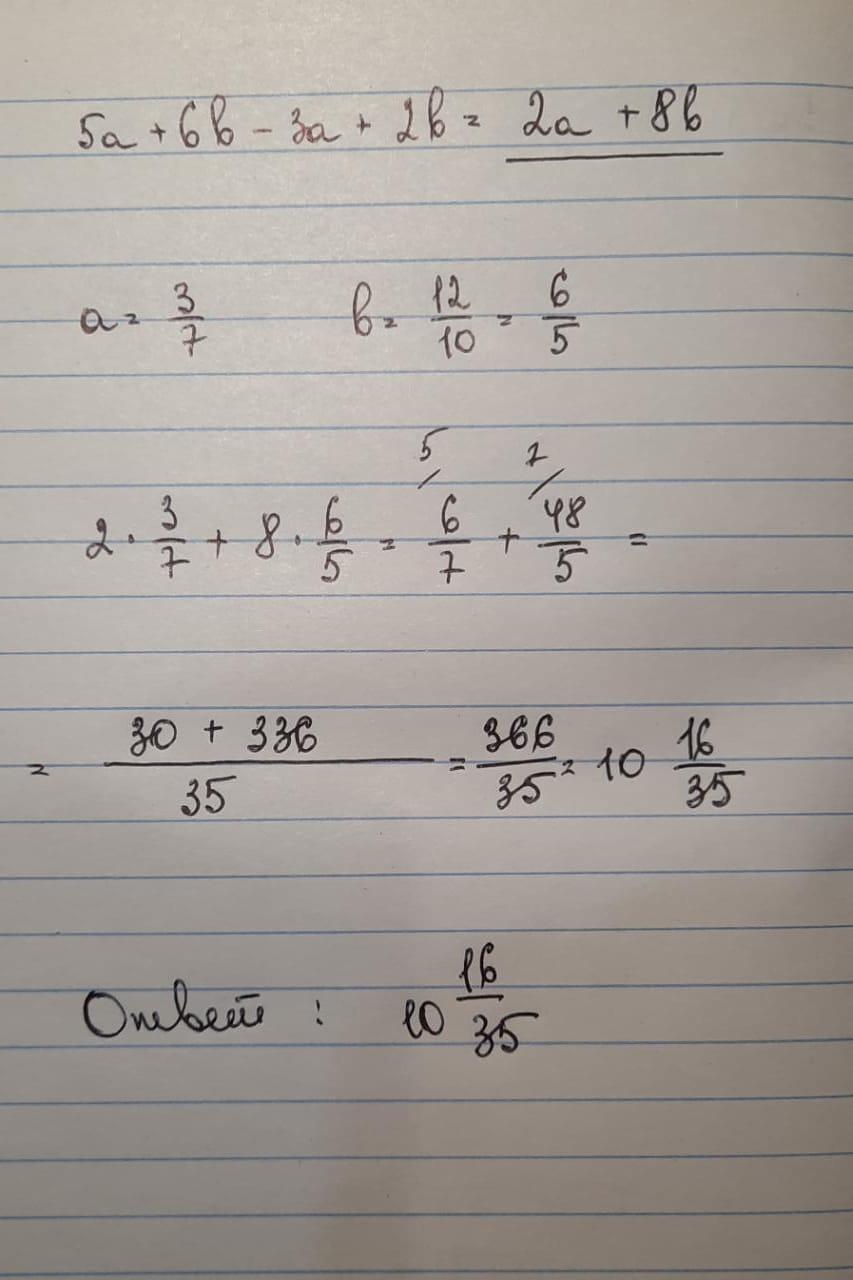 5a + 6b - 3a + 2b = 2a + 8b
a = 3/7 b = 12/10 = 6/5
5/ 7/
2 · 3/7 + 8 · 6/5 = 6/7 + 48/5 =
= (30 + 336)/35 = 366/35 = 10 16/35
Ответ : 10 16/35